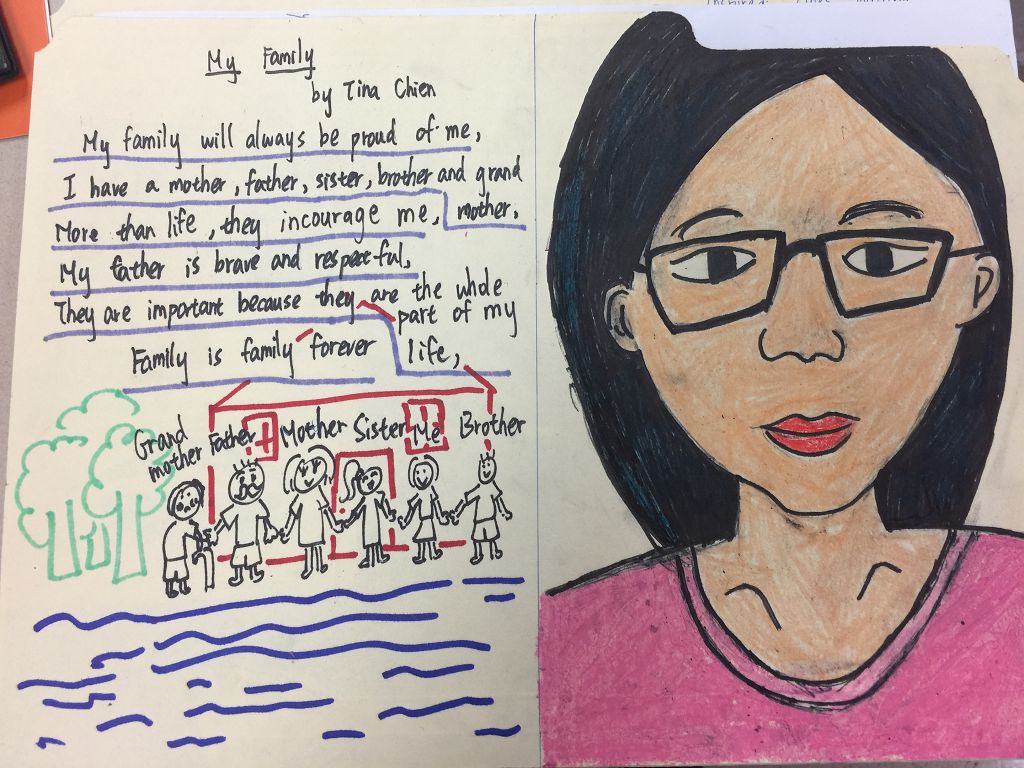 My Family
by Tina Chien
My family will always be proud of me,
I have a mother, father, sister, brother and grand
mother,
More than life, they incourage me,
My father is brave and respectful,
They are important because they are the whole
part of my
life,
Family is family forever
Grand
mother
Father
Mother
Sister
Me
Brother